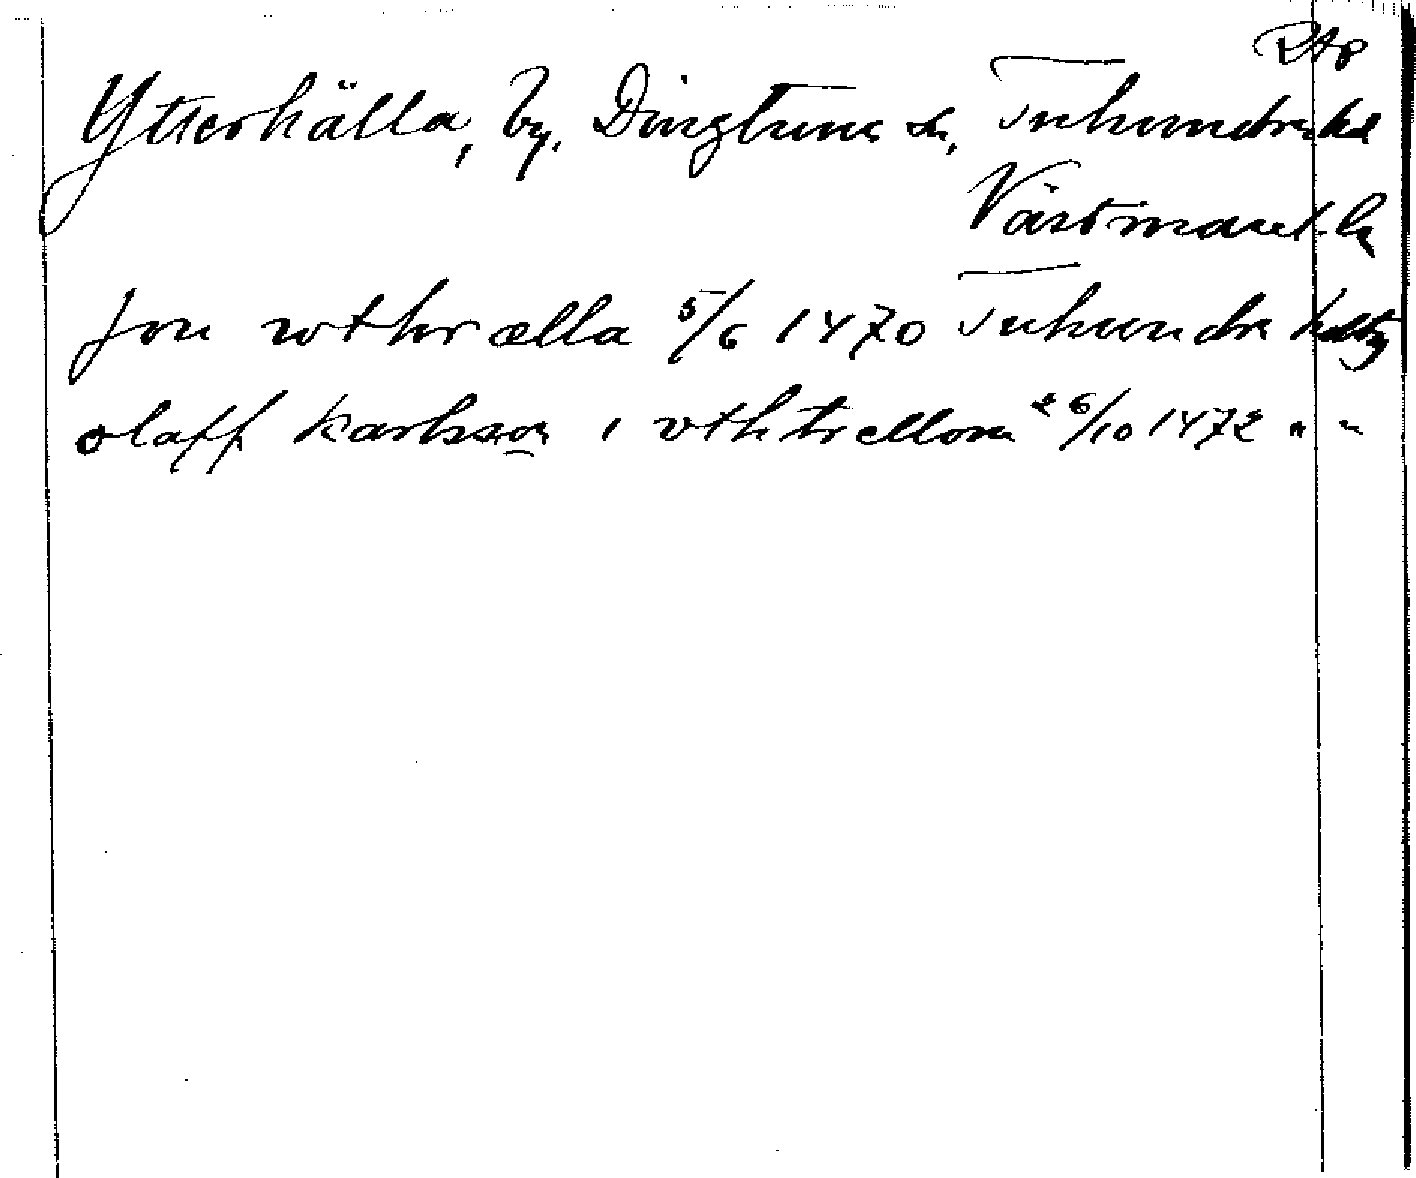 RAp
Ytterhälla, by, Dingtuna sn, Tuhundra hd
Västmanl. l.
Jon wthrælla 5/6 1470 Tuhundra hdtg
olaff karlsson i vthtrellom 26/10 1472 " "